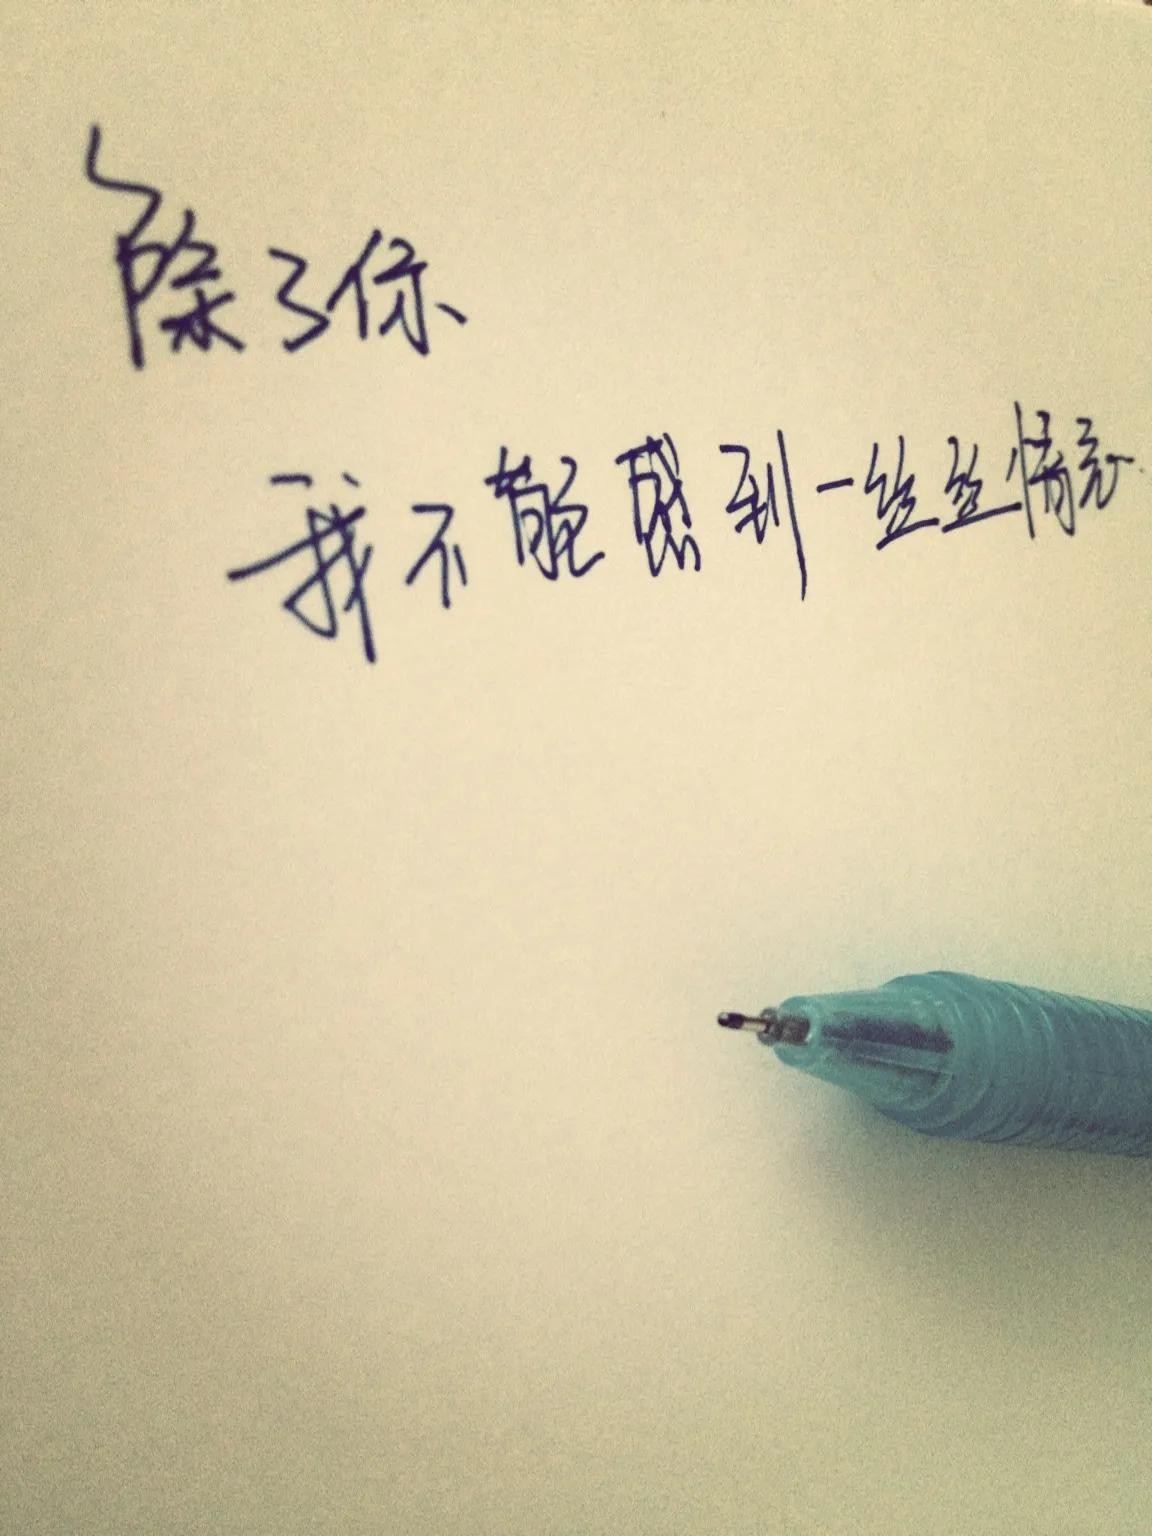 除了你、
我不能感到一丝丝情意.